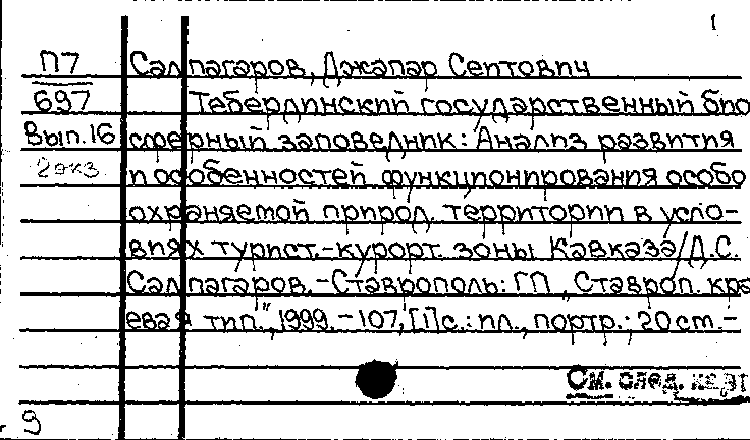 1
П7 Салпагаров, Джапар Сеитович
697 Тебердинский государственный био
Вып.16 сферный заповедник: Анализ развития
2экз и особенностей функционирования особо
охраняемой природ. территории в усло-
виях турист.-курорт. зоны Кавказа/Д.С.
Салпагаров.-Ставрополь: ГП „Ставроп. кра
евая тип.", 1999.-107,[1]с.: ил., портр.; 20 см.-
См. след.
9